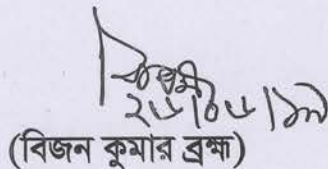 ২৬/০৬/১৯
(বিজন কুমার ব্রহ্ম)